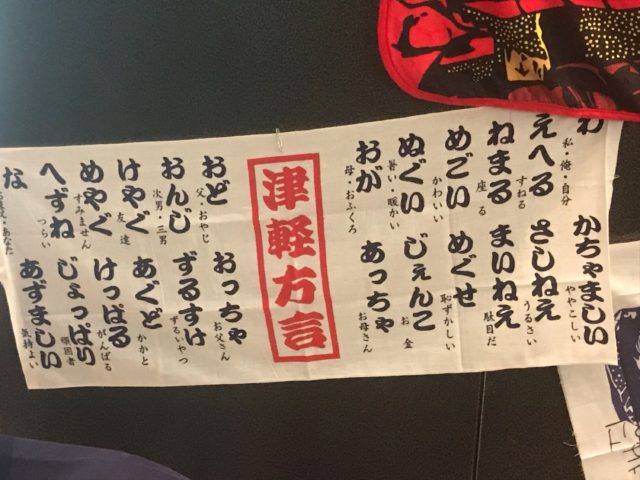 わ
私・俺・自分
かちゃましい
ややこしい
えへる
すねる
さしねえ
うるさい
ねまる
座る
まいねえ
駄目だ
めごい
かわいい
めぐせ
恥ずかしい
ぬぐい
暑い・暖かい
じぇんこ
お金
おが
母・おふくろ
あっちゃ
お母さん
津軽方言
おど
父・おやじ
おっちゃ
お父さん
おんじ
次男・三男
ずるすけ
ずるいやつ
けやぐ
友達
あぐど
かかと
めやぐ
すみません
けっぱる
がんばる
へずね
つらい
じょっぱり
頑固者
な
あなた
あずましい
気持よい